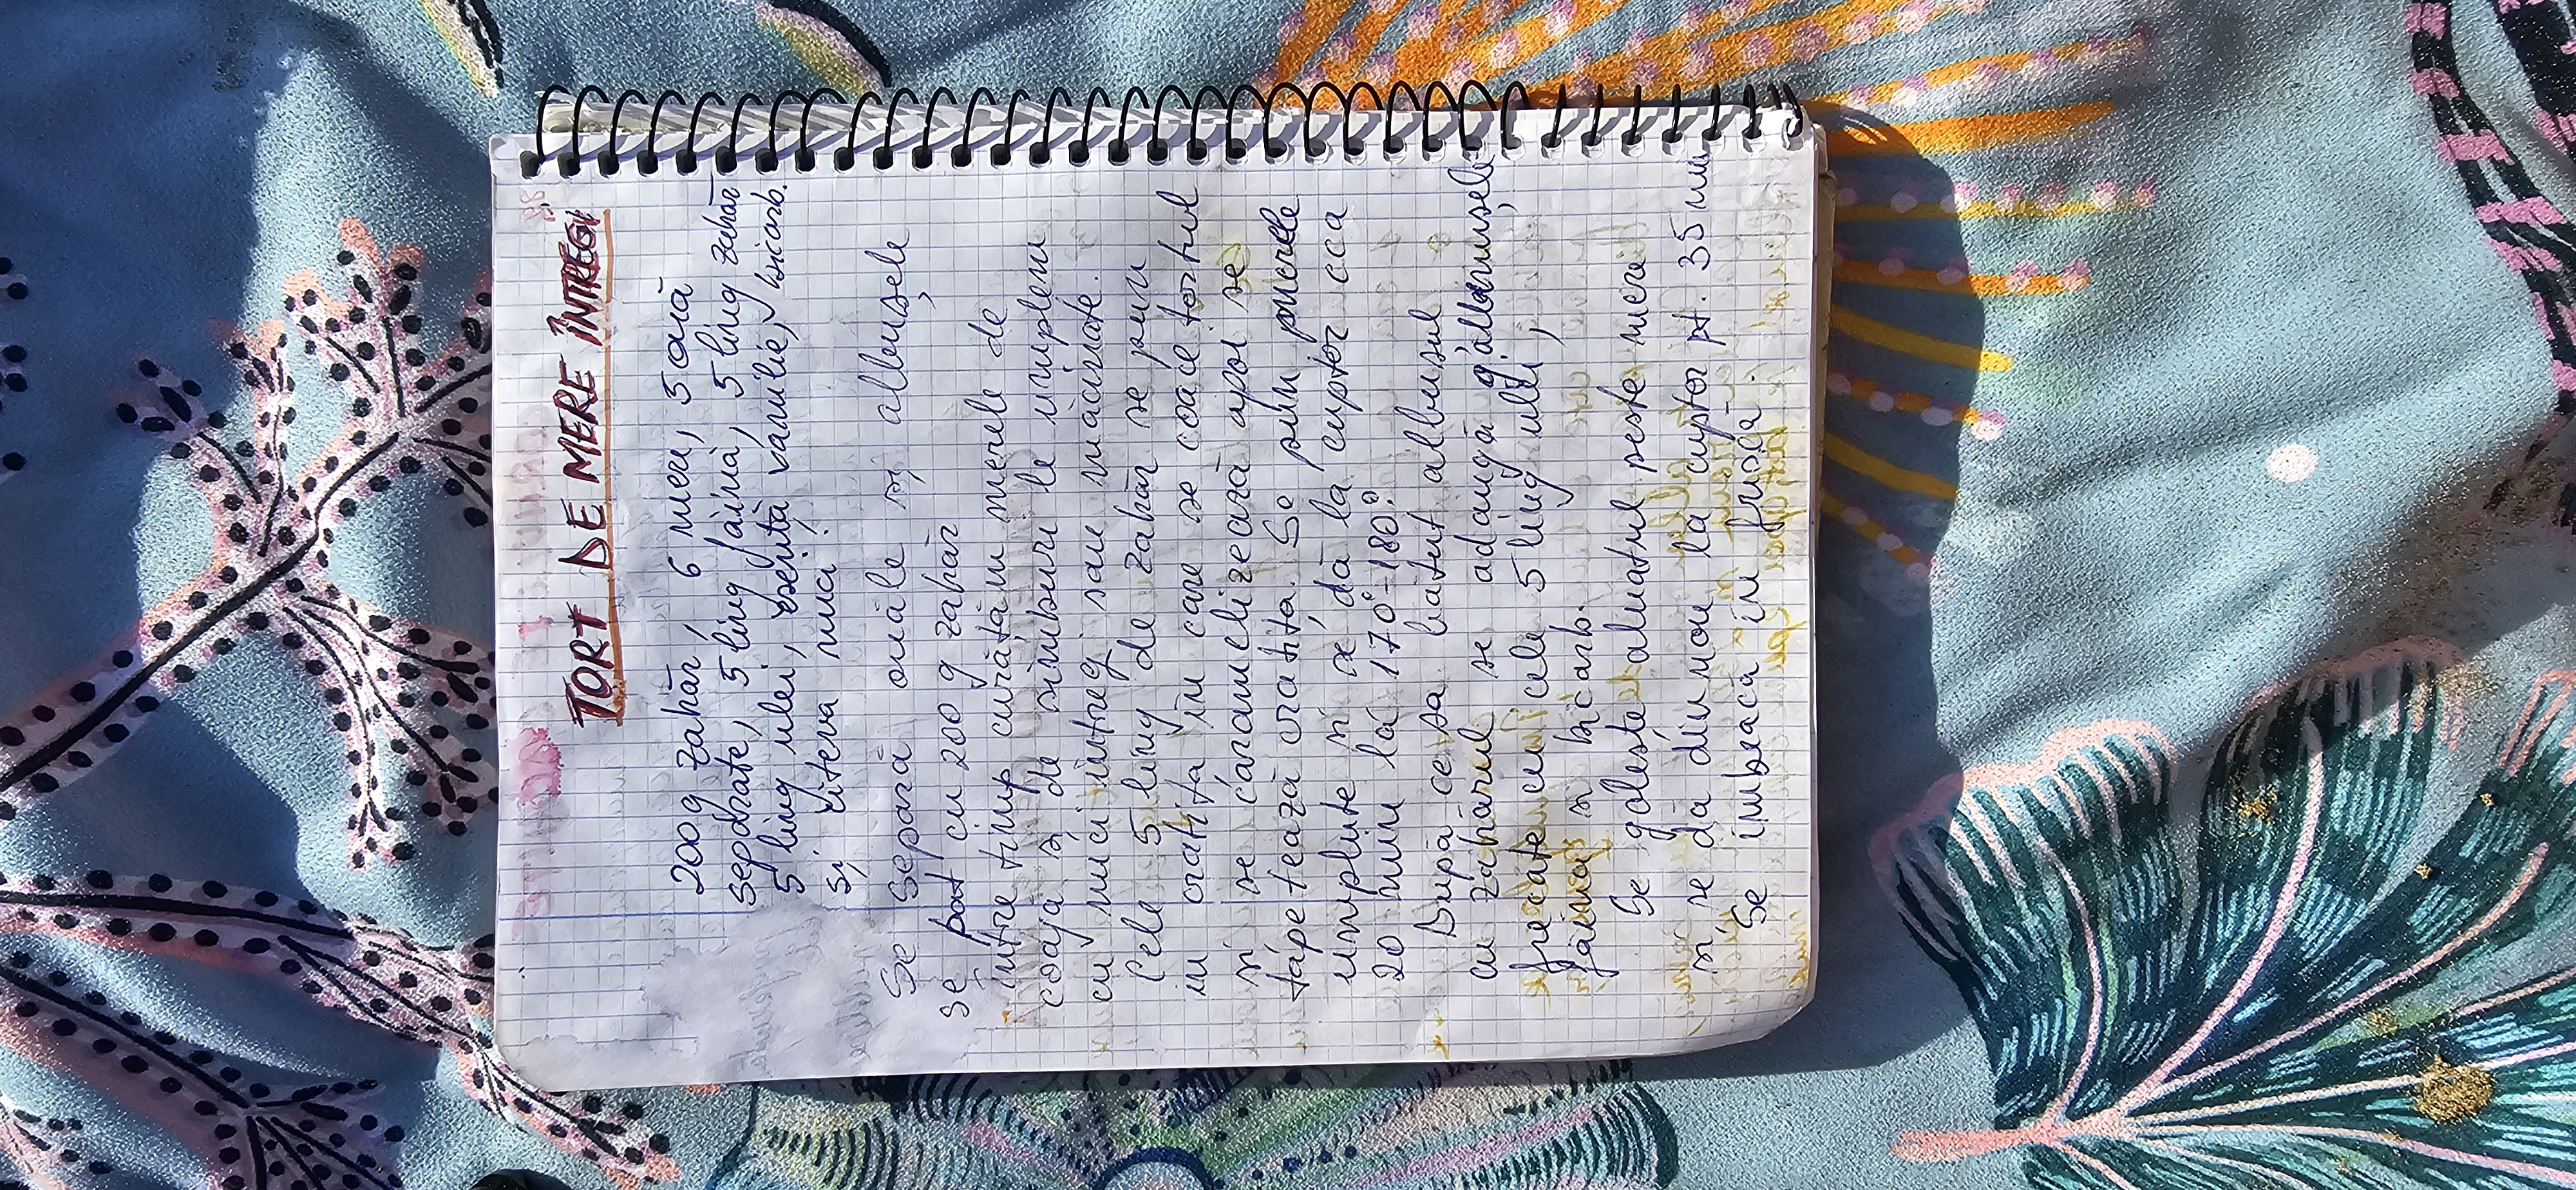 TORT DE MERE ÎNTREGI
200 g zahăr, 6 mere, 5 ouă
separate, 5 ling făină, 5 ling zahăr
5 ling ulei, esență vanilie, bicarb.
și cîteva nuci!
Se separă ouăle și albușele
se bat cu 200 g zahăr
între timp curățăm merele de
coaja și de sîmburi le umplem
cu nuci întregi sau măcinate.
Cele 5 ling de zahăr se pun
in cratița în care se coace tortul
și se caramelizează apoi se
tapetează cratița. Se pun merele
umplute și se dă la cuptor cca
20 min la 170°-180°
După ce sa bătut albusul
cu zahărul se adaugă gălbenușele
frecate cu cele 5 ling ulei,
făina si bicarb.
Se golește aluatul peste mere
și se dă din nou la cuptor pt. 35 min
Se îmbracă în frișcă.